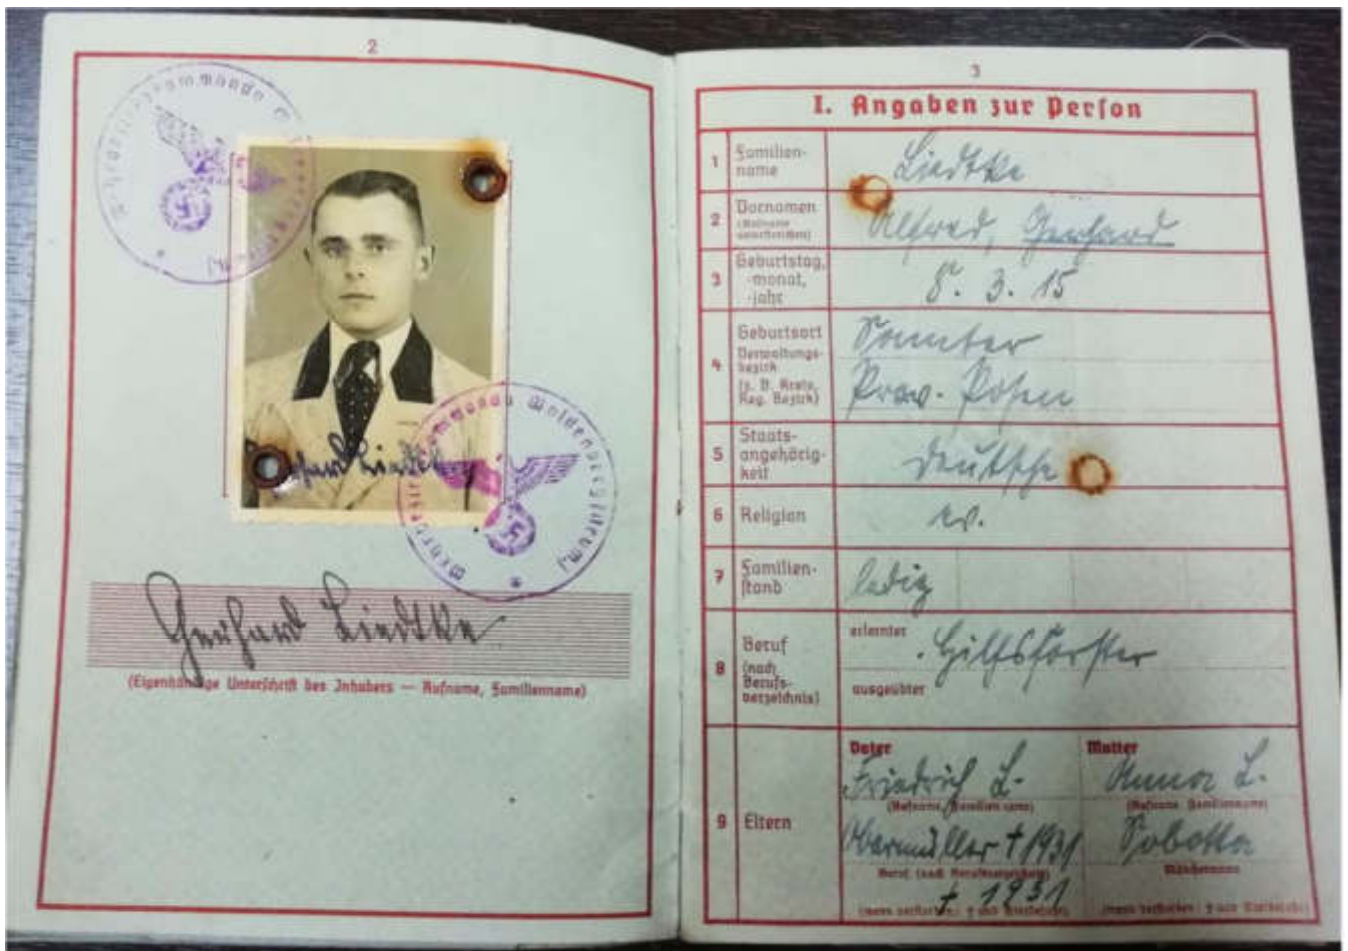 2
Wehrbezirkskommando
Gerhard Liedtke
Wehrbezirkskommando Woldenberg (Neum.)
Gerhard Liedtke
(Eigenhändige Unterschrift des Inhabers — Rufname, Familienname)
3
I. Angaben zur Person
1 Familien-
name
Liedtke
2 Vornamen
(Rufname
unterstreichen)
Alfred, Gerhard
3 Geburtstag,
-monat,
-jahr
8. 3. 15
4 Geburtsort
Verwaltungs-
bezirk
(z. B. Kreis,
Reg. Bezirk)
Samter
Prov. Posen
5 Staats-
angehörig-
keit
deutsche
6 Religion
ev.
7 Familien-
stand
ledig
8 Beruf
(nach
Berufs-
verzeichnis)
erlernter
Hilfsförster
ausgeübter
9 Eltern
Vater
Friedrich L.
(Rufname, Familienname)
Obermüller † 1931
Beruf (nach Berufsverzeichnis)
† 1931
(wenn verstorben: † und Sterbejahr)
Mutter
Anna L.
(Rufname, Familienname)
Sobotta
Mädchenname
(wenn verstorben: † und Sterbejahr)